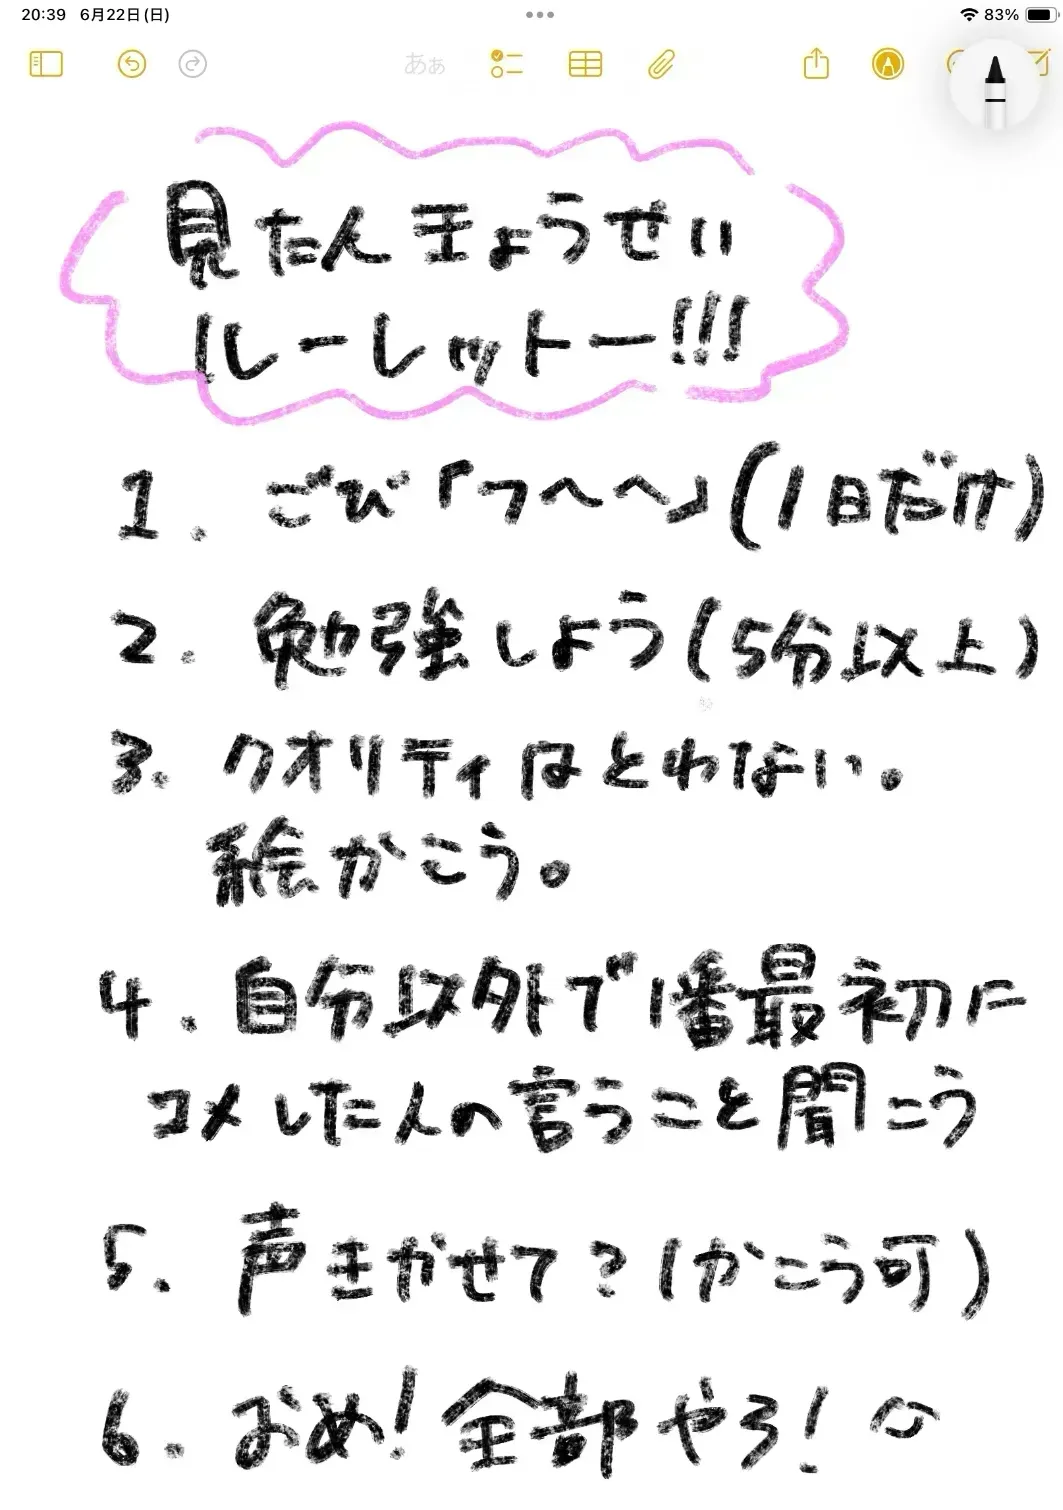 20:39 6月22日(日)
83%
あぁ
見たんきょうせい
ルーレットー!!!
1. ごび「つへへ」(1日だけ)
2. 勉強しよう(5分以上)
3. クオリティはとわない。
絵かこう。
4. 自分以外で1番最初に
コメした人の言うこと聞こう
5. 声きかせて?(かこう可)
6. おめ!全部やろ!